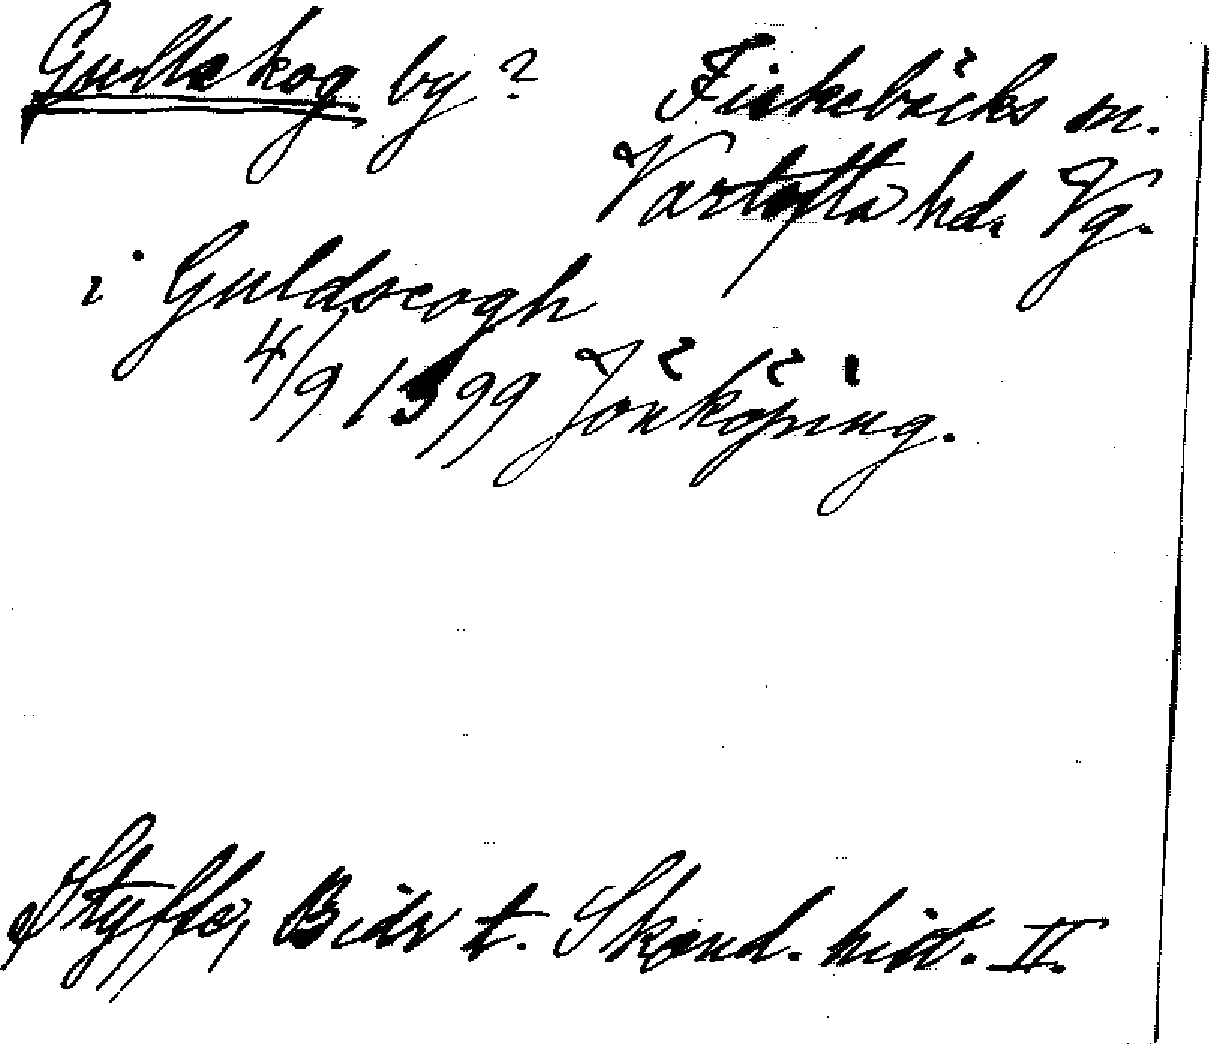 Gullskog by? Fiskebäcks sn.
Vartofta hd. Vg.
i Guldscogh
4/9 1399 Jönköping.
Styffe, Bidr t. Skand. hist. II.